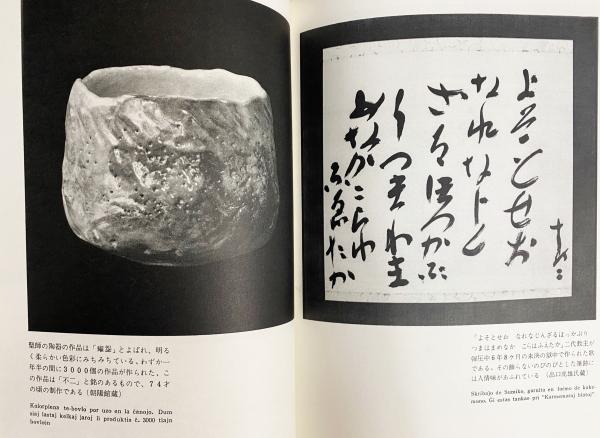 よそとせお
なれなじん
ざるほつかぶ
りつまわま
めなかこらわ
ふゑたか
聖師の陶器の作品は「耀盌」とよばれ、明る
く柔らかい色彩にみちみちている。わずか一
年半の間に3000個の作品が作られた。こ
の作品は「不二」と銘のあるもので、74才
頃の制作である（朝陽館蔵）
te-bovlo por uzo en la ĉenojo. Dum
siaj lastaj kelkaj jaroj li produktis ĉ. 3000 tiajn
bovlojn
「よそとせお　なれなじんざるほっかぶり
つまはまめなか　こらはふえたか」二代教主が
弾圧中6年8ヶ月の未決の獄中で作られた歌
である。その飾らないのびのびとした筆跡に
は人情味があふれている（出口虎雄氏蔵）
Skribaĵo de Sumiko, garnita en formo de kake-
mono. Ĝi estas tankao pri